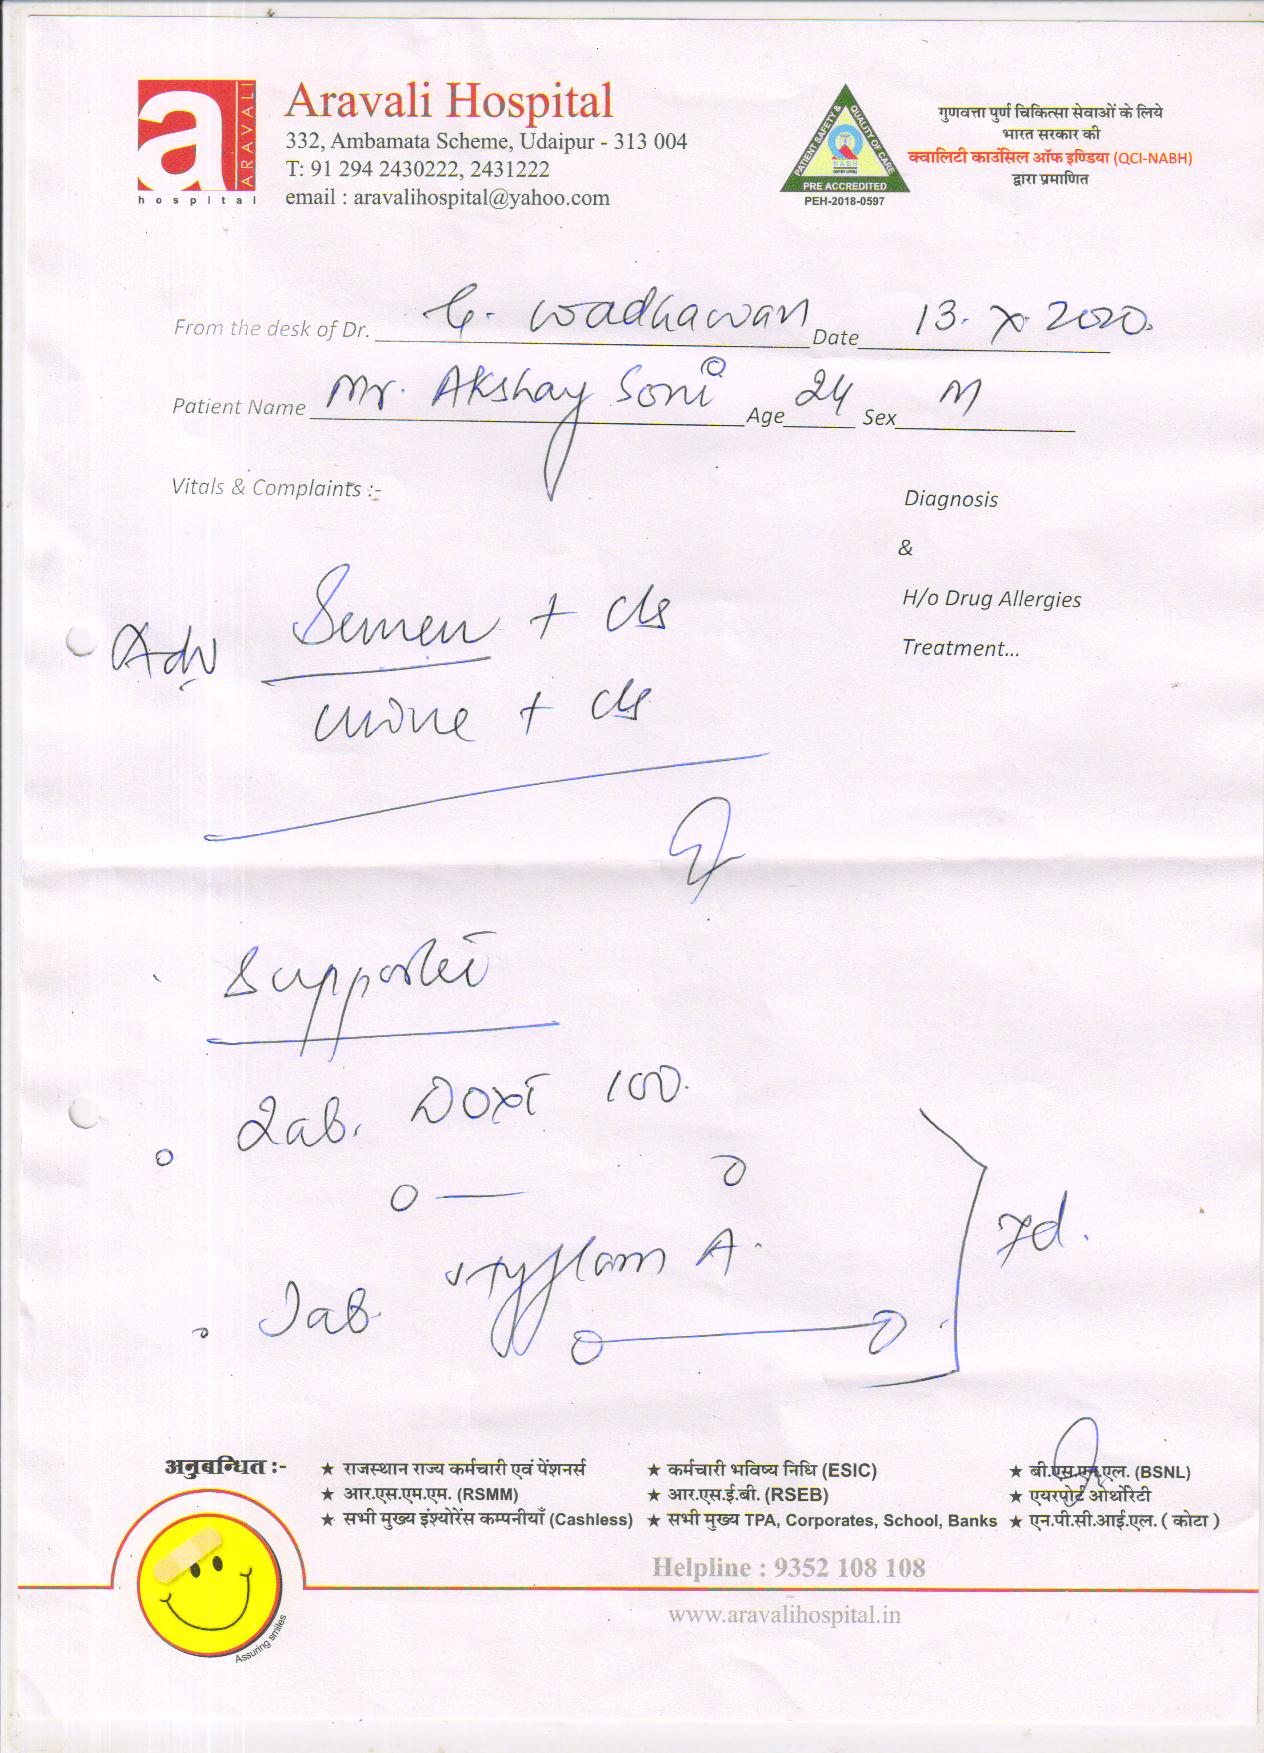 a ARAVALI
hospital
Aravali Hospital
332, Ambamata Scheme, Udaipur - 313 004
T: 91 294 2430222, 2431222
email : aravalihospital@yahoo.com
PATIENT SAFETY & QUALITY OF CARE
NABH
PRE ACCREDITED
PEH-2018-0597
गुणवत्ता पुर्ण चिकित्सा सेवाओं के लिये
भारत सरकार की
क्वालिटी काउंसिल ऑफ इण्डिया (QCI-NABH)
द्वारा प्रमाणित
From the desk of Dr. G. Wadhawan Date 13. X. 2020.
Patient Name Mr. Akshay Soni Age 24 Sex M
Vitals & Complaints :-
Diagnosis
&
H/o Drug Allergies
Treatment...
Adv Semen + c/s
urine + c/s
Tab. DOXI 100.
0 — 0
Tab A.
0 — 0
7d.
अनुबन्धित :-
★ राजस्थान राज्य कर्मचारी एवं पेंशनर्स ★ कर्मचारी भविष्य निधि (ESIC) ★ बी.एस.एन.एल. (BSNL)
★ आर.एस.एम.एम. (RSMM) ★ आर.एस.ई.बी. (RSEB) ★ एयरपोर्ट ओथोरिटी
★ सभी मुख्य इंश्योरेंस कम्पनीयाँ (Cashless) ★ सभी मुख्य TPA, Corporates, School, Banks ★ एन.पी.सी.आई.एल. ( कोटा )
Helpline : 9352 108 108
www.aravalihospital.in
Assuring smiles